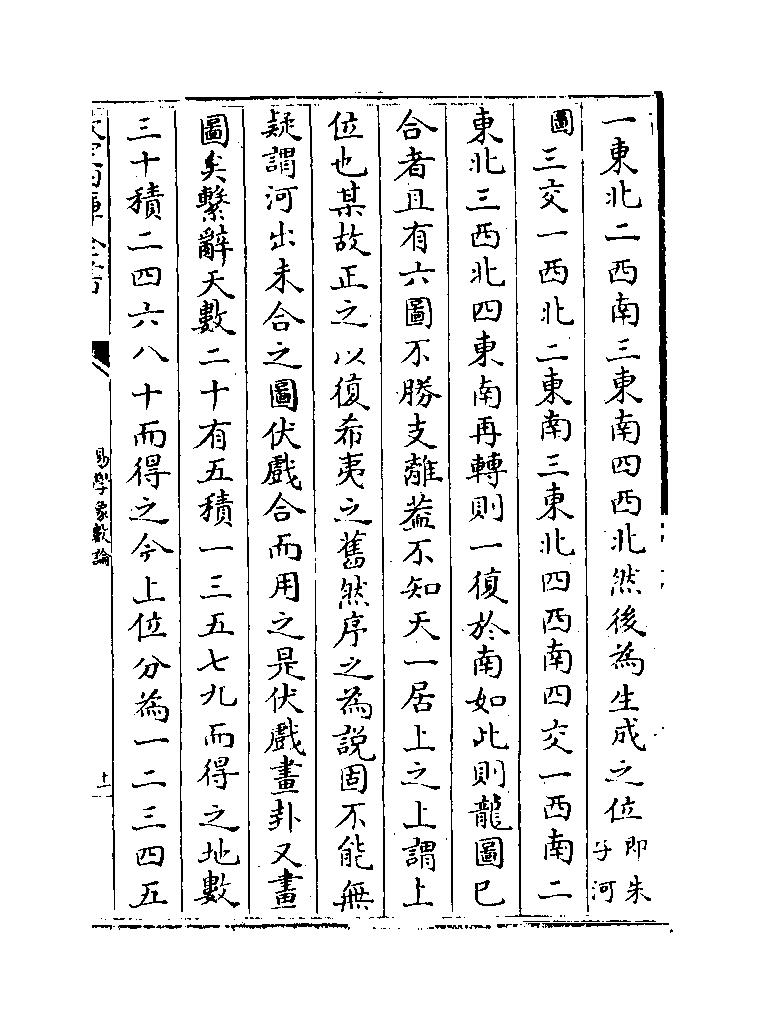 一東北二西南三東南四西北然後為生成之位即朱子河
圖三交一西北二東南三東北四西南四交一西南二
東北三西北四東南再轉則一復於南如此則龍圖已
合者且有六圖不勝支離葢不知天一居上之上謂上
位也某故正之以復希夷之舊然序之為說固不能無
疑謂河出未合之圖伏戲合而用之是伏戲畫卦又畫
圖矣繫辭天數二十有五積一三五七九而得之地數
三十積二四六八十而得之今上位分為一二三四五
易學象數論
十一